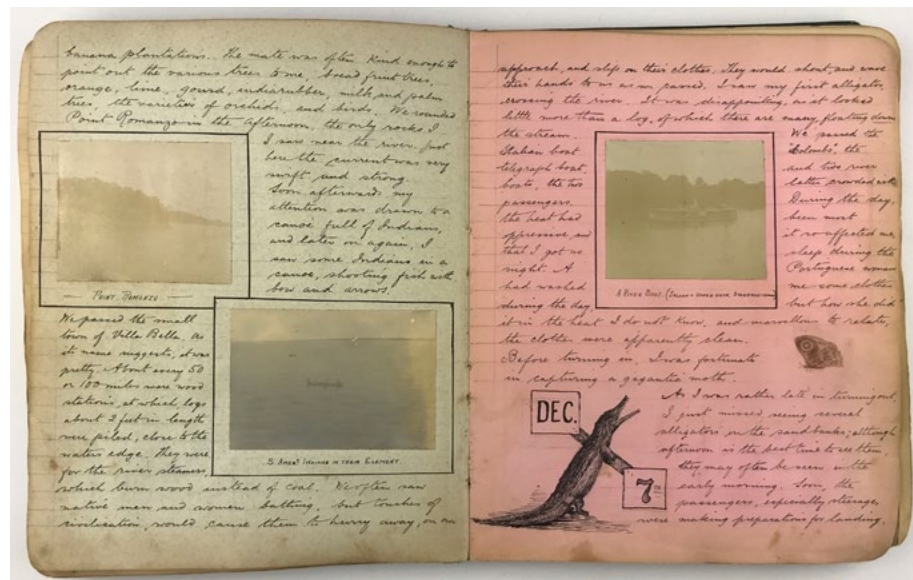 banana plantations. The mate was often kind enough to
point out the various trees to me, bread fruit trees,
orange, lime, gourd, indiarubber, milk, and palm
trees, the varieties of orchids, and birds. We rounded
Point Romanzo in the afternoon, the only rocks I
I saw near the river. Just
here the current was very
swift and strong.
Soon afterwards my
attention was drawn to a
canoe full of Indians,
and later on again, I
saw some Indians in a
canoe, shooting fish with
bow and arrows.
POINT ROMANZO
We passed the small
town of Villa Bella, as
its name suggests, it was
pretty. About every 50
or 100 miles were wood
stations, at which logs
about 2 feet in length
were piled, close to the
waters edge. They were
for the river steamers
which burn wood instead of coal. We often saw
native men and women bathing, but touches of
civilisation, would cause them to hurry away, on our
S. AMERN INDIANS IN THEIR ELEMENT.
approach, and slip on their clothes. They would shout, and wave
their hands to us as we passed. I saw my first alligator
crossing the river. It was disappointing, as it looked
little more than a log, of which there are many, floating down
the stream. We passed the
Italian boat "Colombo", the
telegraph boat, and two river
boats, the two latter crowded with
passengers. During the day,
the heat had been most
oppressive and it so affected me
that I got no sleep during the
night. A Portuguese woman
had washed me some clothes
during the day, but how she did
it in the heat I do not know, and marvellous to relate,
the clothes were apparently clean.
Before turning in, I was fortunate
in capturing a gigantic moth.
A RIVER BOAT.
DEC.
7TH
As I was rather late in turning out,
I just missed seeing several
alligators on the sandbanks; although
afternoon is the best time to see them,
they may often be seen in the
early morning. Soon, the
passengers, especially steerage,
were making preparations for landing.